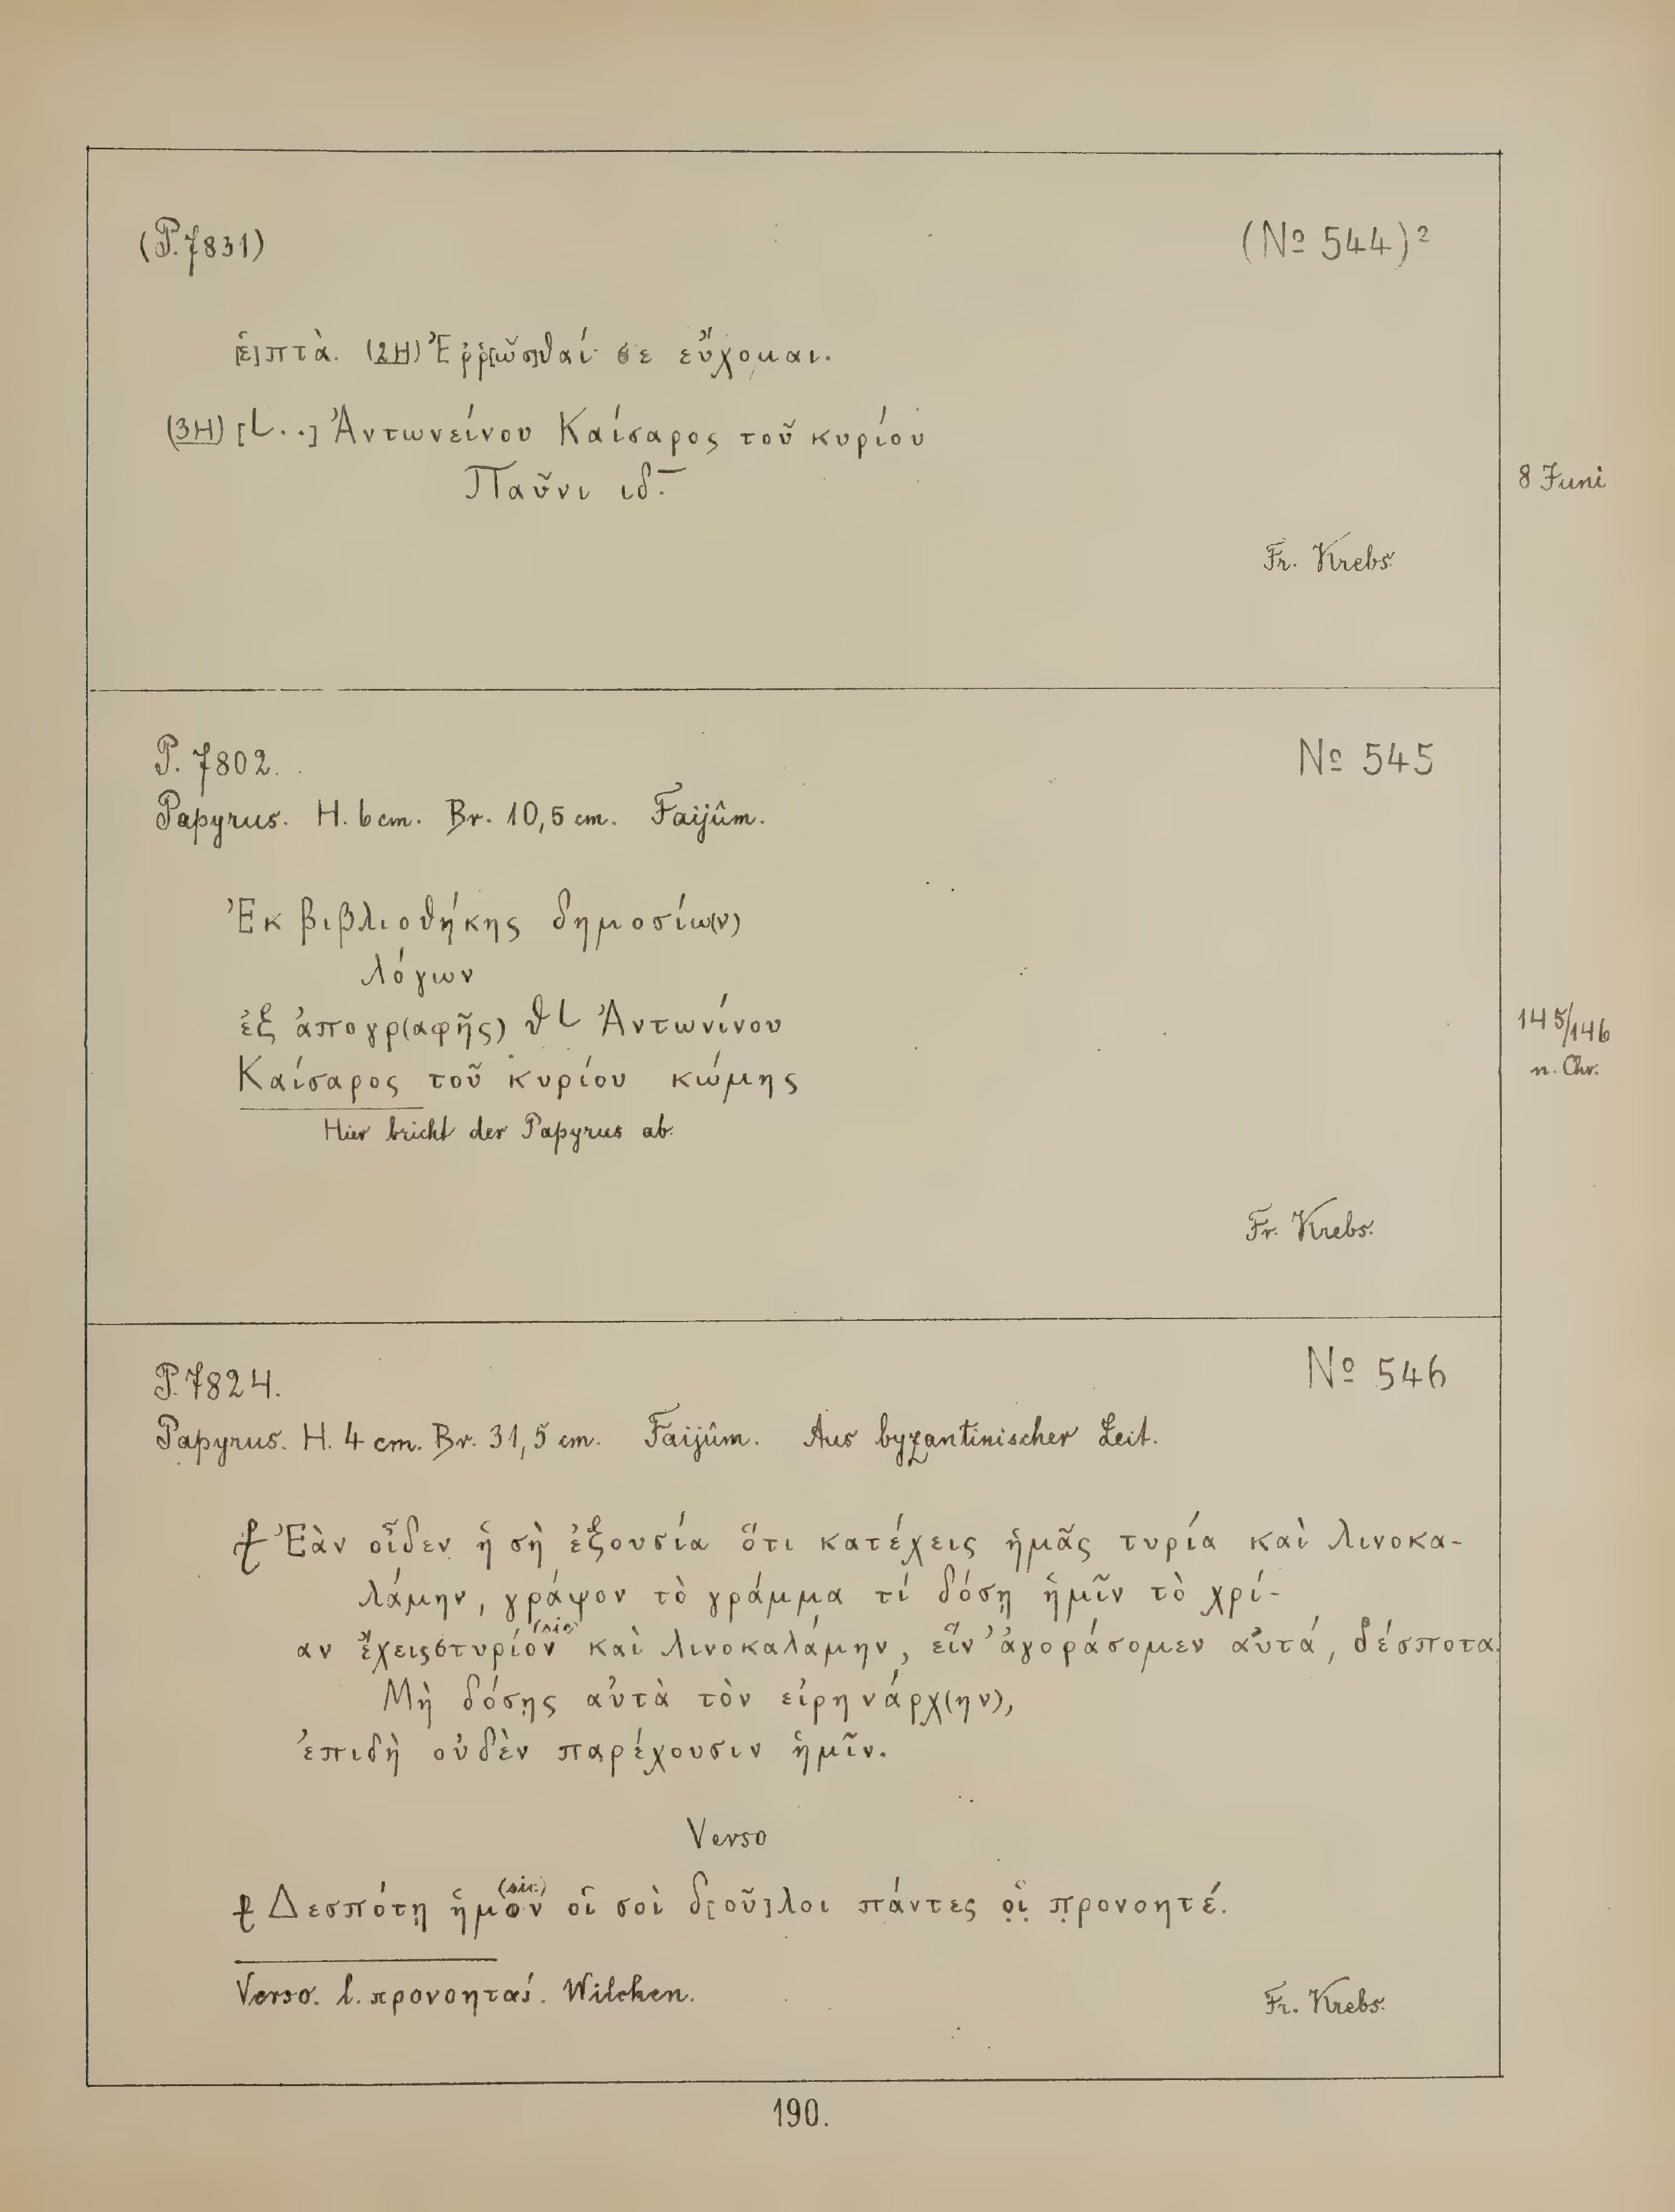 (P. 7831) (No 544)²
[ἑ]πτὰ. (2H) Ἐρρ[ῶσ]θαί σε εὔχομαι.
(3H) [L..] Ἀντωνείνου Καίσαρος τοῦ κυρίου
Παῦνι ιδ̅.
8 Juni
Fr. Krebs.
P. 7802. No 545
Papyrus. H. 6 cm. Br. 10,5 cm. Faijûm.
Ἐκ βιβλιοθήκης δημοσίω(ν)
λόγων
ἐξ ἀπογρ(αφῆς) θ L Ἀντωνίνου
Καίσαρος τοῦ κυρίου κώμης
145/146
n. Chr.
Hier bricht der Papyrus ab.
Fr. Krebs.
P. 7824. No 546
Papyrus. H. 4 cm. Br. 31,5 cm. Faijûm. Aus byzantinischer Zeit.
⳨ Ἐὰν οἶδεν ἡ σὴ ἐξουσία ὅτι κατέχεις ἡμᾶς τυρία καὶ λινοκα-
λάμην, γράψον τὸ γράμμα τί δόσῃ ἡμῖν τὸ χρί-
αν ἔχειςστυρίον (sic) καὶ λινοκαλάμην, εἵν' ἀγοράσομεν αὐτά, δέσποτα.
Μὴ δόσῃς αὐτὰ τὸν εἰρηνάρχ(ην),
ἐπιδὴ οὐδὲν παρέχουσιν ἡμῖν.
Verso
⳨ Δεσπότῃ ἡμον (sic) οἱ σοὶ δ[οῦ]λοι πάντες ο̣ἱ̣ π̣ρονοητέ.
Verso. l. προνοηταί. Wilcken.
Fr. Krebs.
190.